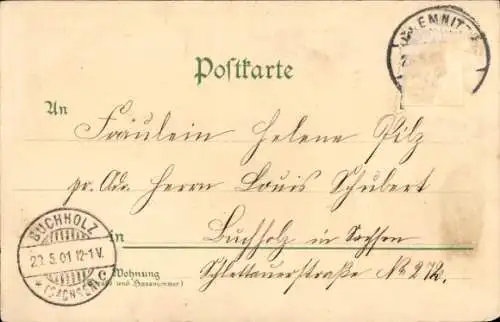 Postkarte
CHEMNITZ
An
Fräulein Helene Pilz
pr. Adr. Herrn Louis Schubert
BUCHHOLZ
in Buchholz in Sachsen
12-1V.
(SACHSEN)
C
Wohnung
Schlettauerstraße No 272.
und Hausnummer)